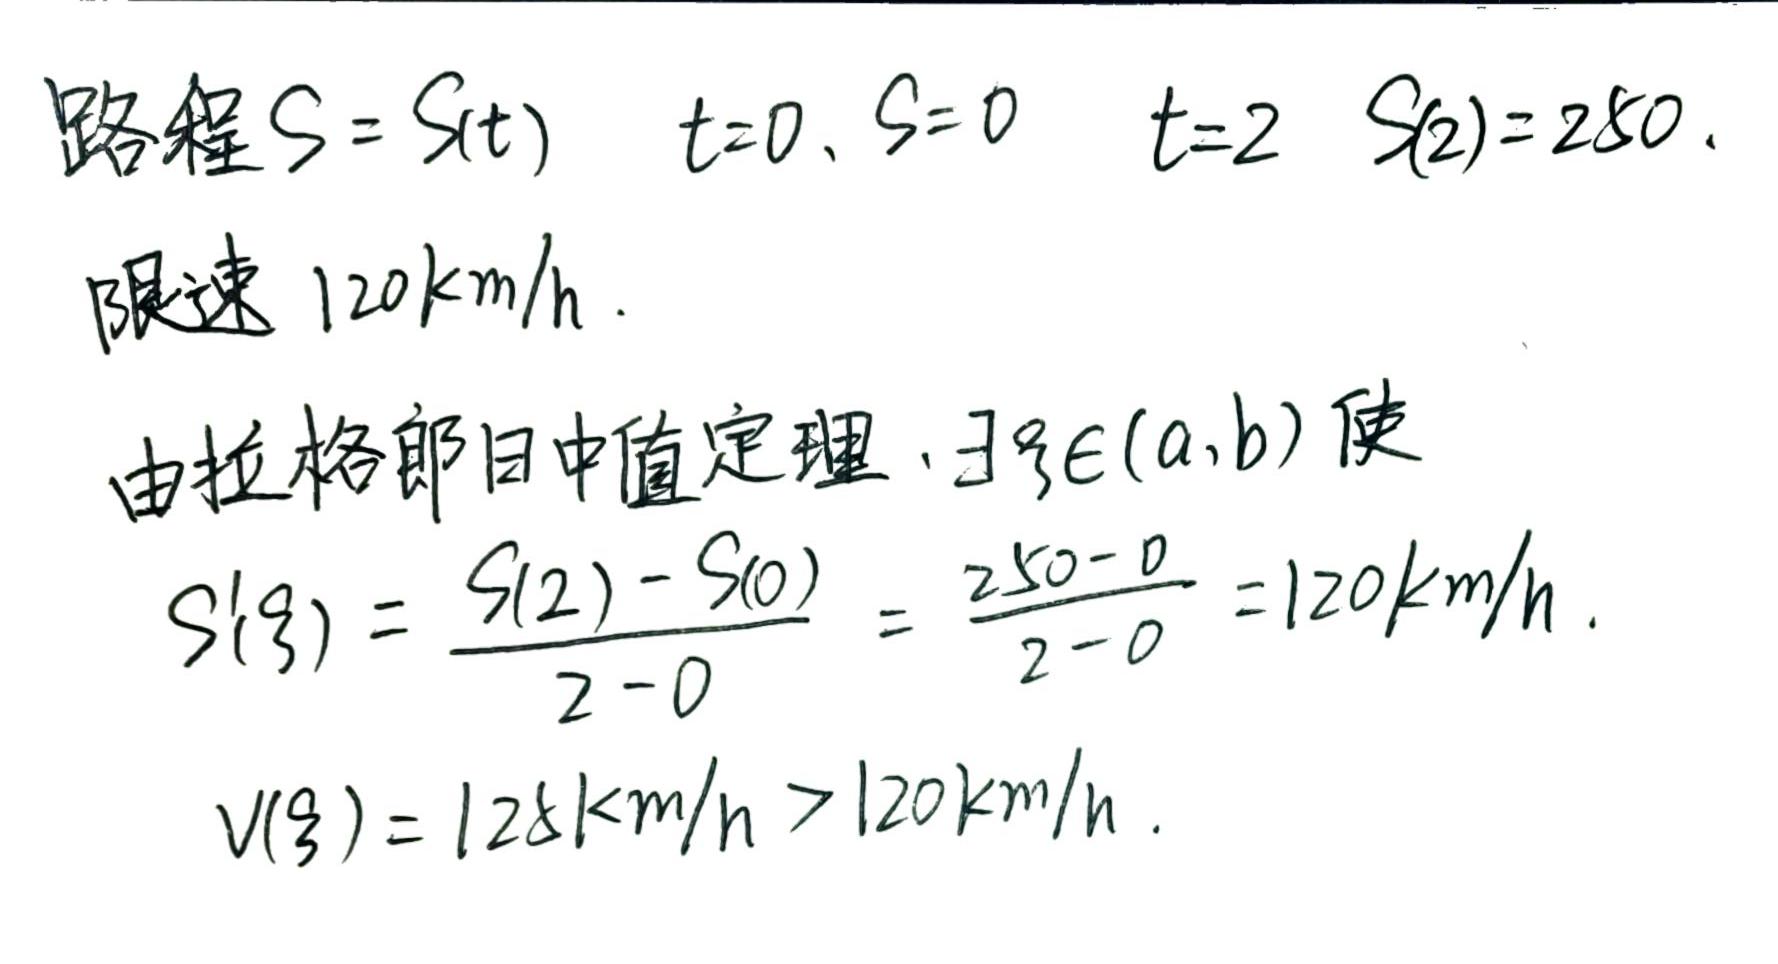 路程S=S(t) t=0、S=0 t=2 S(2)=250.
限速 120km/h.
由拉格郎日中值定理、∃ξ∈(a,b)使
S'(ξ) = \frac{S(2)-S(0)}{2-0} = \frac{250-0}{2-0} =120km/h.
V(ξ)=125km/h>120km/h.